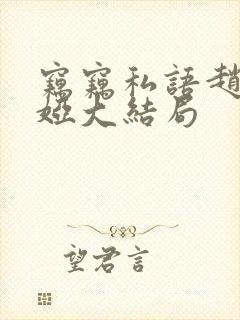 竊竊私語趙
婭大結局
望君言